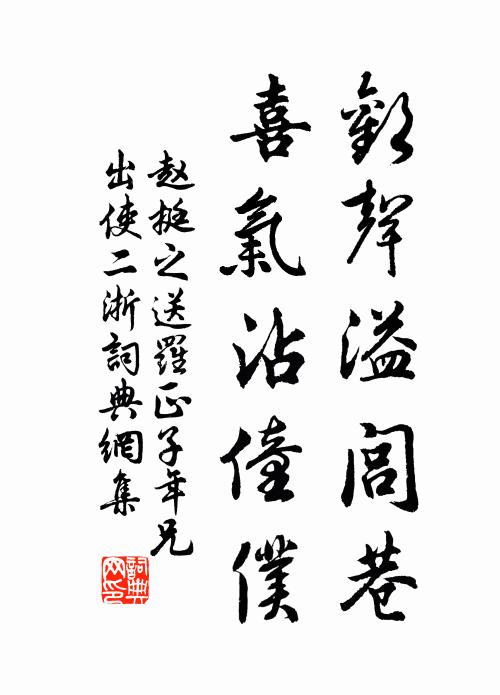 歡聲溢閭巷
喜氣沾僮僕
赵挺之送羅正子年兄
出使二浙詞典網集
詞典网印